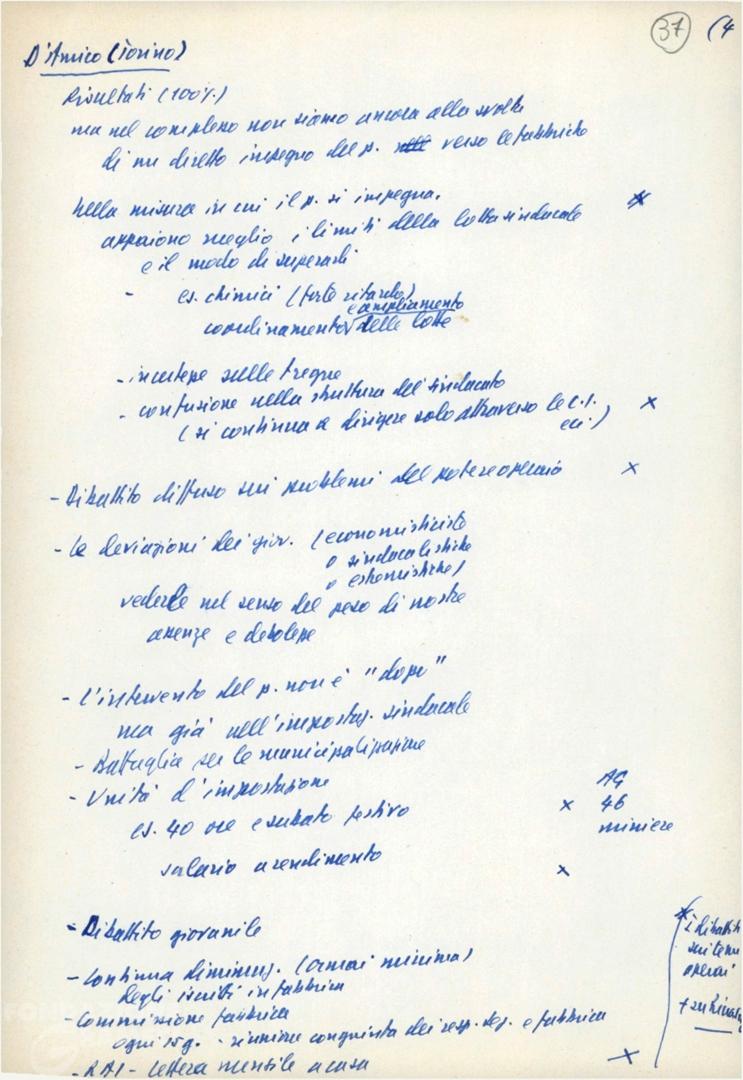 37 (4
D'Amico (Torino)
Risultati (100%)
ma nel complesso non siamo ancora alla svolta
di un diretto impegno del p. verso le fabbriche
Nella misura in cui il p. si impegna,
appaiono meglio i limiti della lotta sindacale
e il modo di superarli
- es. chimici (forte ritardo)
e ampliamento
coordinamento delle lotte
- incertezze sulle tregue
- confusione nella struttura del sindacato
(si continua a dirigere solo attraverso le C.I.
ecc.)
- Dibattito diffuso sui problemi del potere operaio
- Le deviazioni dei giov. (economicistiche
o sindacalistiche
o estremistiche)
vederle nel senso del peso di nostre
assenze e debolezze
- L'intervento del p. non è "dopo"
ma già nell'impostaz. sindacale
- Battaglia per le municipalizzazione
- Unità d'impostazione
es. 40 ore e sabato festivo
salario a rendimento
AG
46
miniere
- Dibattito giovanile
- Continua diminuz. (ormai minima)
degli iscritti in fabbrica
- Commissione fabbrica
ogni 15 g. - riunione congiunta dei resp. seg. e fabbrica
- RAI - lettera mensile a casa
i dibattiti
sui temi
operai